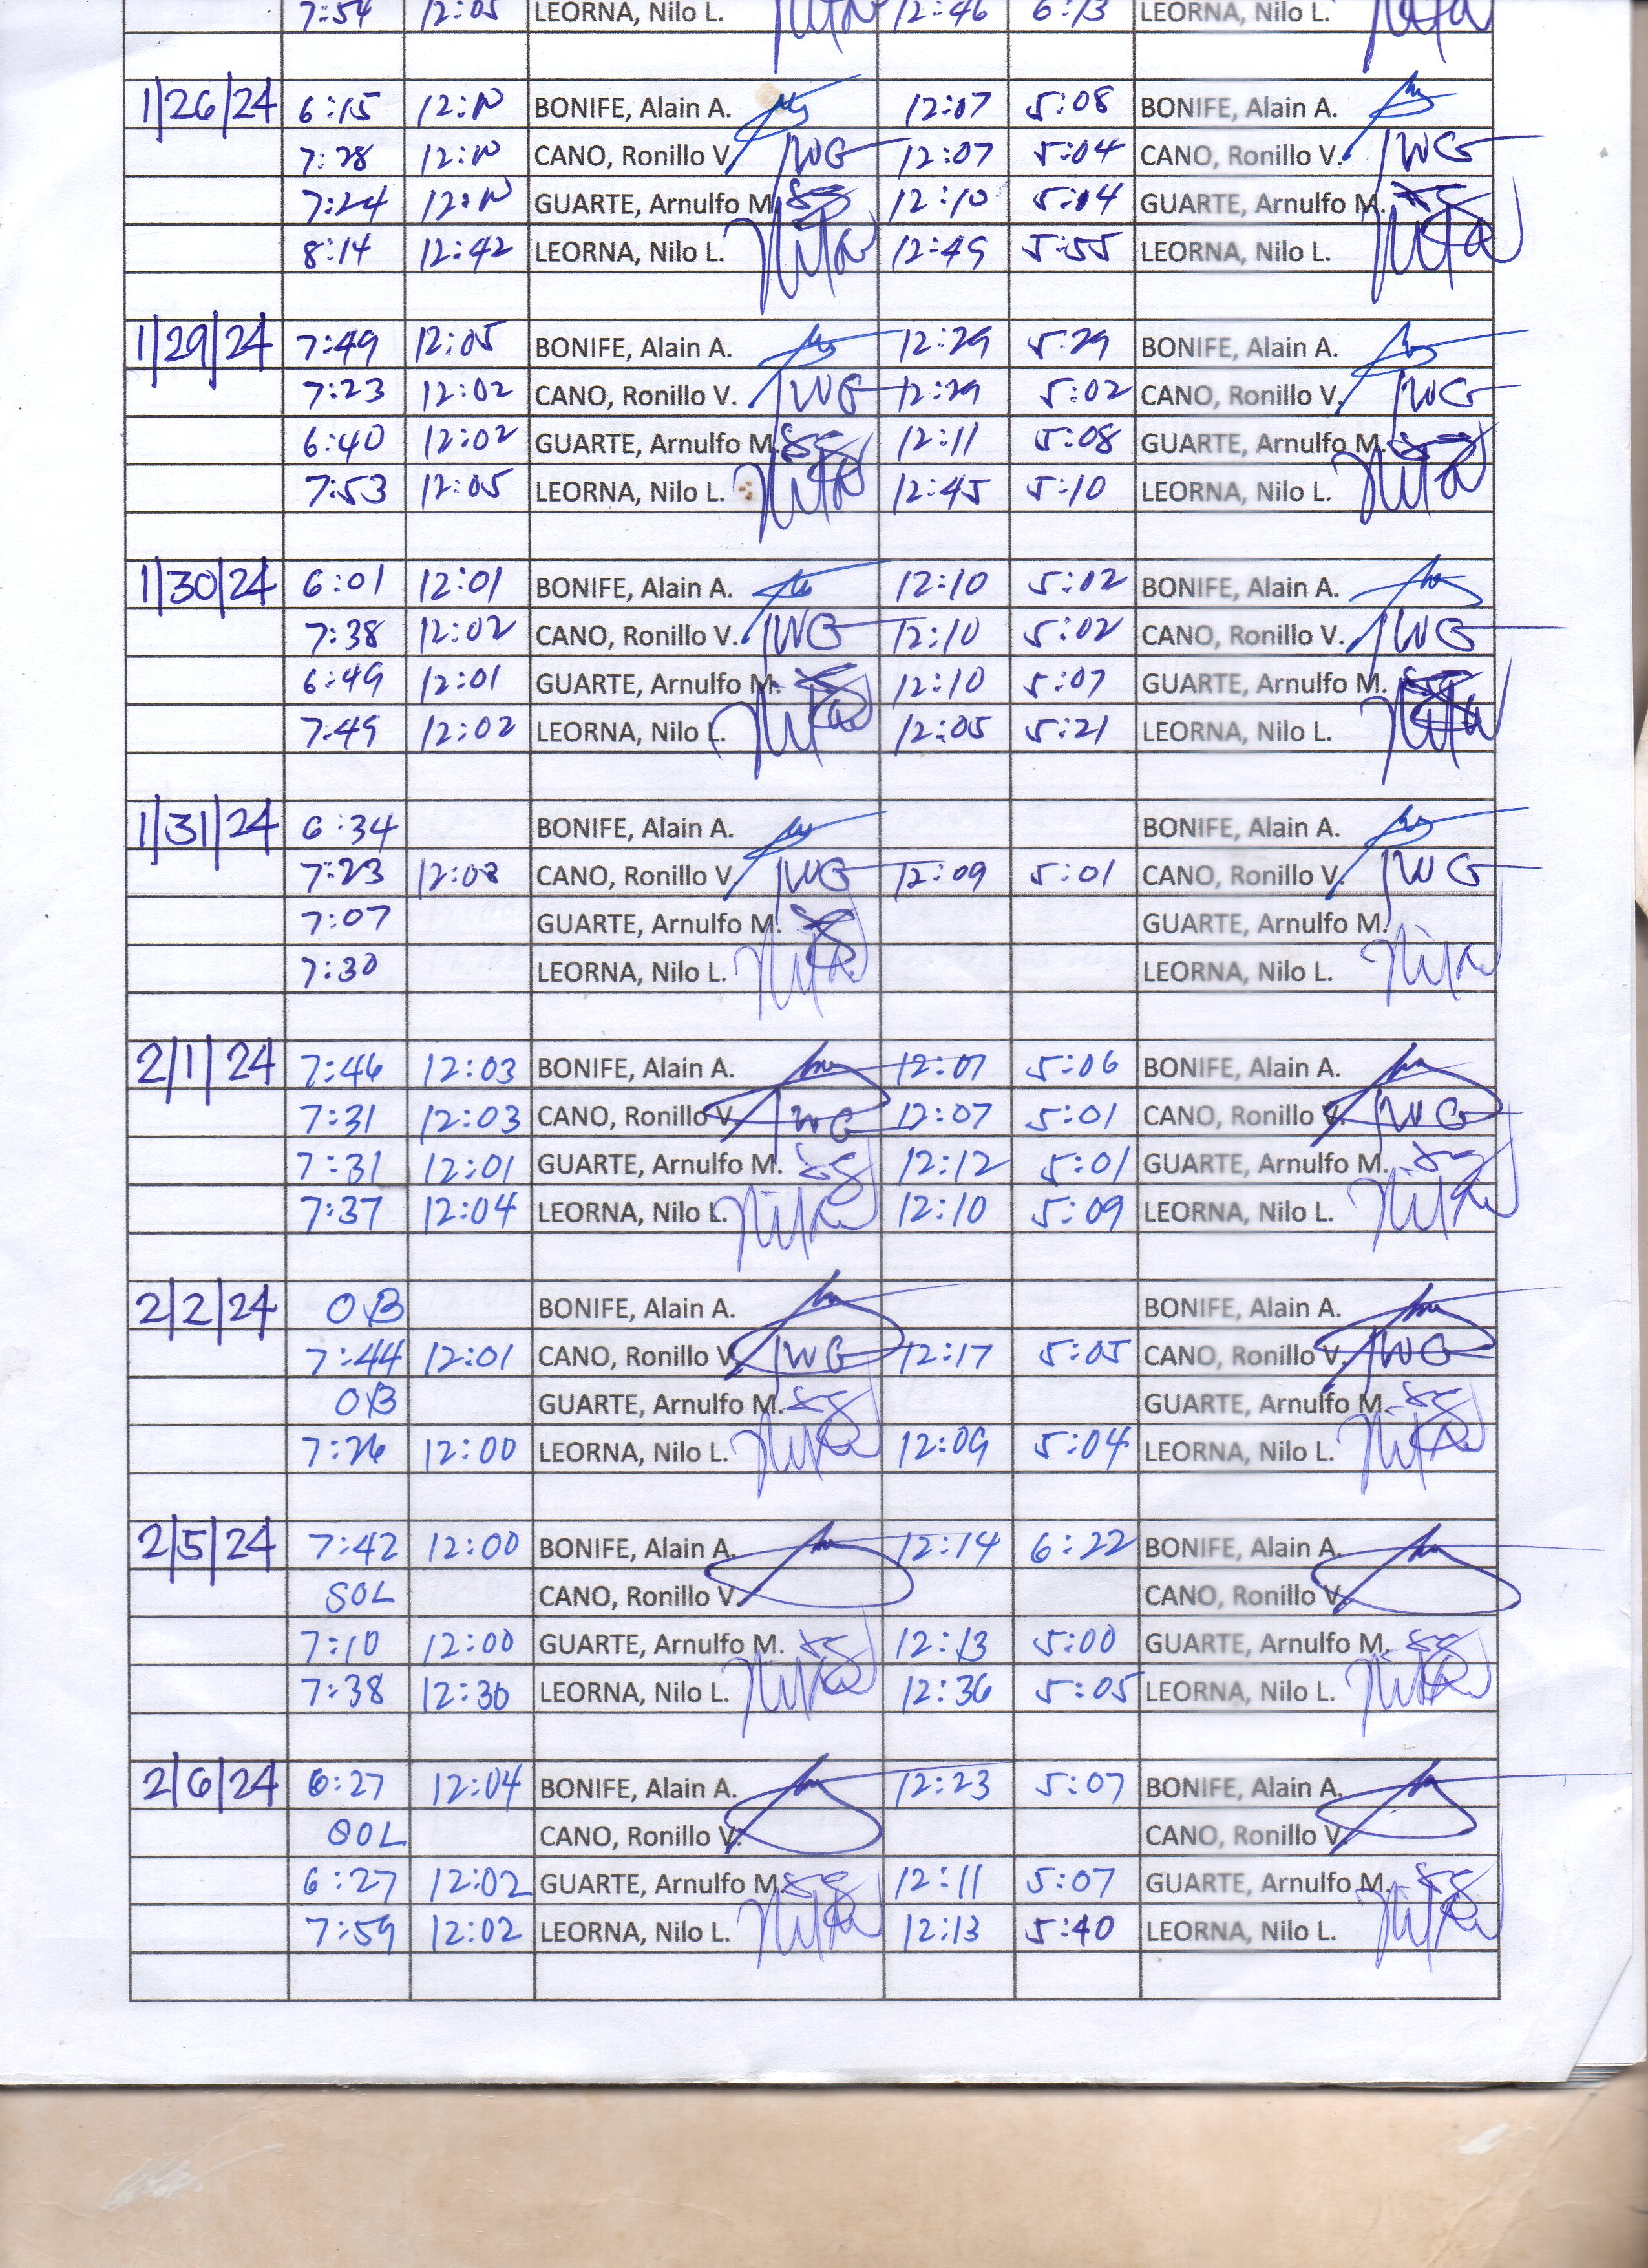 7:54 12:05 LEORNA, Nilo L. 12:46 6:13 LEORNA, Nilo L.
1/26/24 6:15 12:10 BONIFE, Alain A. 12:07 5:08 BONIFE, Alain A.
7:28 12:10 CANO, Ronillo V. 12:07 5:04 CANO, Ronillo V.
7:24 12:10 GUARTE, Arnulfo M. 12:10 5:04 GUARTE, Arnulfo M.
8:14 12:42 LEORNA, Nilo L. 12:49 5:55 LEORNA, Nilo L.
1/29/24 7:49 12:05 BONIFE, Alain A. 12:29 5:29 BONIFE, Alain A.
7:23 12:02 CANO, Ronillo V. 12:29 5:02 CANO, Ronillo V.
6:40 12:02 GUARTE, Arnulfo M. 12:11 5:08 GUARTE, Arnulfo M.
7:53 12:05 LEORNA, Nilo L. 12:45 5:10 LEORNA, Nilo L.
1/30/24 6:01 12:01 BONIFE, Alain A. 12:10 5:02 BONIFE, Alain A.
7:38 12:02 CANO, Ronillo V. 12:10 5:02 CANO, Ronillo V.
6:49 12:01 GUARTE, Arnulfo M. 12:10 5:07 GUARTE, Arnulfo M.
7:49 12:02 LEORNA, Nilo L. 12:05 5:21 LEORNA, Nilo L.
1/31/24 6:34 BONIFE, Alain A. BONIFE, Alain A.
7:23 12:03 CANO, Ronillo V. 12:09 5:01 CANO, Ronillo V.
7:07 GUARTE, Arnulfo M. GUARTE, Arnulfo M.
7:30 LEORNA, Nilo L. LEORNA, Nilo L.
2/1/24 7:46 12:03 BONIFE, Alain A. 12:07 5:06 BONIFE, Alain A.
7:31 12:03 CANO, Ronillo V. 12:07 5:01 CANO, Ronillo V.
7:31 12:01 GUARTE, Arnulfo M. 12:12 5:01 GUARTE, Arnulfo M.
7:37 12:04 LEORNA, Nilo L. 12:10 5:09 LEORNA, Nilo L.
2/2/24 OB BONIFE, Alain A. BONIFE, Alain A.
7:44 12:01 CANO, Ronillo V. 12:17 5:05 CANO, Ronillo V.
OB GUARTE, Arnulfo M. GUARTE, Arnulfo M.
7:26 12:00 LEORNA, Nilo L. 12:09 5:04 LEORNA, Nilo L.
2/5/24 7:42 12:00 BONIFE, Alain A. 12:14 6:22 BONIFE, Alain A.
SOL CANO, Ronillo V. CANO, Ronillo V.
7:10 12:00 GUARTE, Arnulfo M. 12:13 5:00 GUARTE, Arnulfo M.
7:38 12:30 LEORNA, Nilo L. 12:36 5:05 LEORNA, Nilo L.
2/6/24 6:27 12:04 BONIFE, Alain A. 12:23 5:07 BONIFE, Alain A.
SOL CANO, Ronillo V. CANO, Ronillo V.
6:27 12:02 GUARTE, Arnulfo M. 12:11 5:07 GUARTE, Arnulfo M.
7:59 12:02 LEORNA, Nilo L. 12:13 5:40 LEORNA, Nilo L.